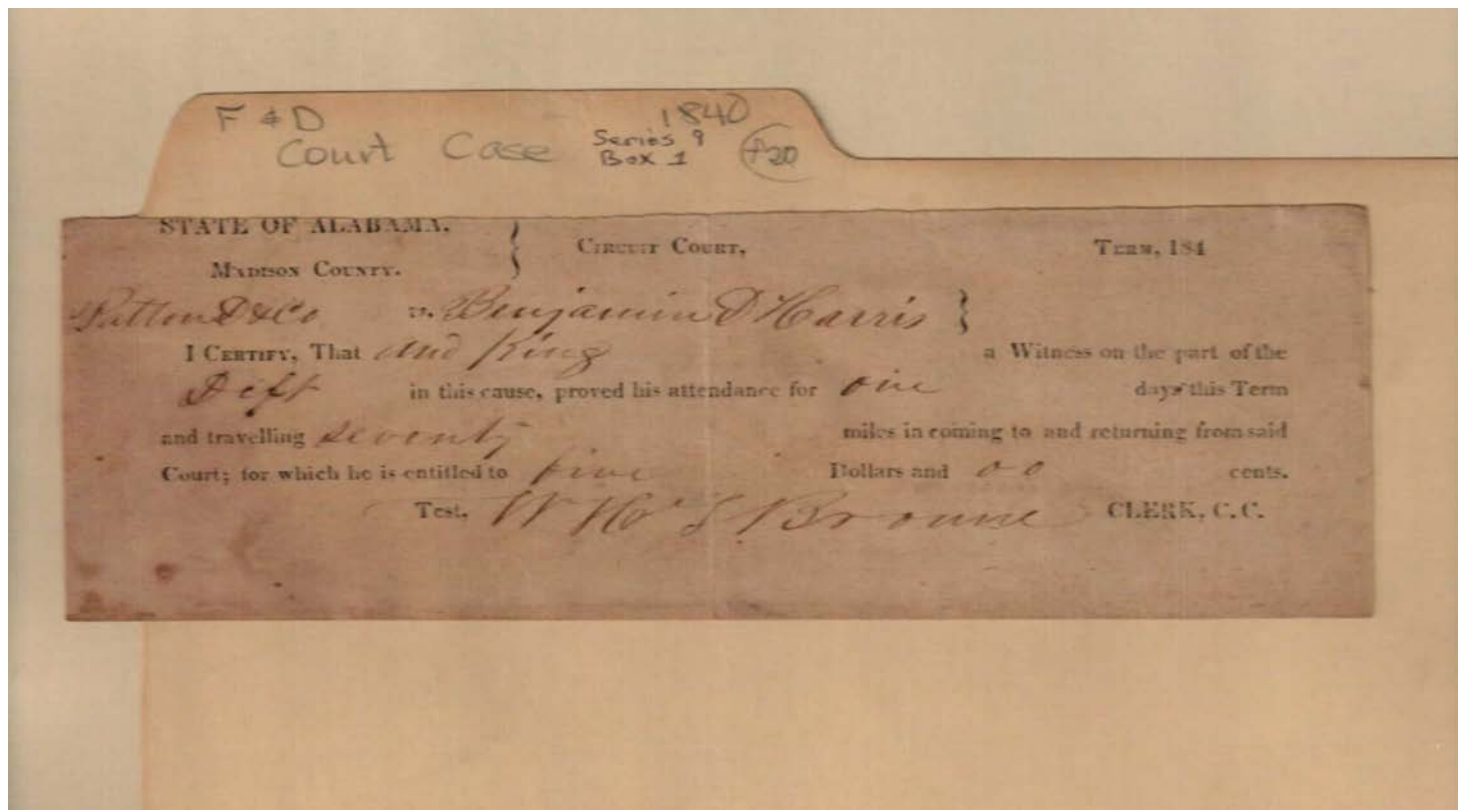 F & D 1840
Court Case Series 9
Box 1 F20
STATE OF ALABAMA, } CIRCUIT COURT, TERM, 184
MADISON COUNTY.
Patton D & Co vs. Benjamin D Harris }
I CERTIFY, That King a Witness on the part of the
Deft in this cause, proved his attendance for one days this Term
and travelling seventy miles in coming to and returning from said
Court; for which he is entitled to five Dollars and 00 cents.
Test. Browne CLERK, C. C.